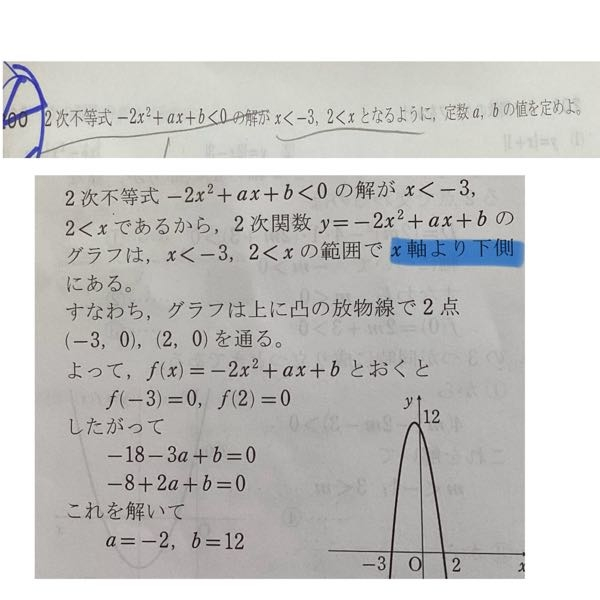 00 2次不等式 −2x²+ax+b<0 の解が x<−3, 2<x となるように, 定数 a, b の値を定めよ。
2次不等式 −2x²+ax+b<0 の解が x<−3,
2<x であるから, 2次関数 y=−2x²+ax+b の
グラフは, x<−3, 2<x の範囲で x 軸より下側
にある。
すなわち, グラフは上に凸の放物線で2点
(−3, 0), (2, 0) を通る。
よって, f(x)=−2x²+ax+b とおくと
f(−3)=0, f(2)=0
したがって
−18−3a+b=0
−8+2a+b=0
これを解いて
a=−2, b=12
y
12
−3 O 2 x